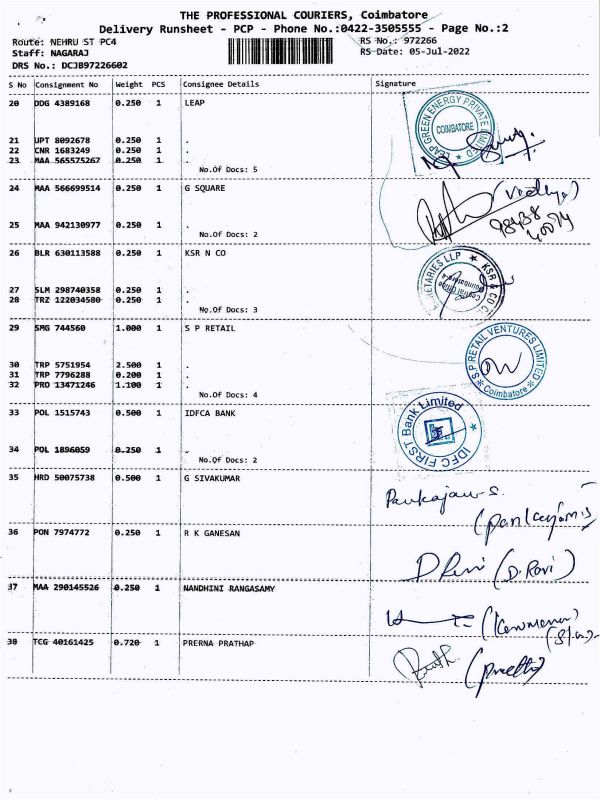 THE PROFESSIONAL COURIERS, Coimbatore
Delivery Runsheet - PCP - Phone No.:0422-3505555 - Page No.:2
Route: NEHRU ST PC4 RS No.: 972266
Staff: NAGARAJ RS-Date: 05-Jul-2022
DRS No.: DCJB97226602
S No Consignment No Weight PCS Consignee Details Signature
20 DDG 4389168 0.250 1 LEAP
LEAP GREEN ENERGY PRIVATE LIMITED
COIMBATORE
21 UPT 8092678 0.250 1 .
22 CNR 1683249 0.250 1 .
23 MAA 565575267 0.250 1 .
No.Of Docs: 5
24 MAA 566699514 0.250 1 G SQUARE
25 MAA 942130977 0.250 1 .
No.Of Docs: 2
26 BLR 630113588 0.250 1 KSR N CO
KSR & CO
27 SLM 298740358 0.250 1 .
28 TRZ 122034580 0.250 1 .
No.Of Docs: 3
29 SMG 744560 1.000 1 S P RETAIL
S.P RETAIL VENTURES LIMITED
Coimbatore
30 TRP 5751954 2.500 1 .
31 TRP 7796288 0.200 1 .
32 PRO 13471246 1.100 1 .
No.Of Docs: 4
33 POL 1515743 0.500 1 IDFCA BANK
IDFC FIRST Bank Limited
34 POL 1896059 0.250 1 .
No.Of Docs: 2
35 HRD 50075738 0.500 1 G SIVAKUMAR
Pankajam S.
36 PON 7974772 0.250 1 R K GANESAN
(D. Ravi)
37 MAA 290145526 0.250 1 NANDHINI RANGASAMY
38 TCG 40161425 0.720 1 PRERNA PRATHAP